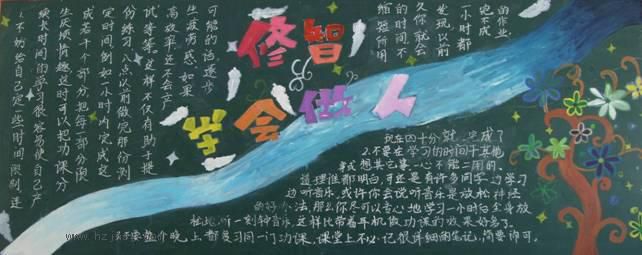 修智
学会做人
1.不妨给自己定一些时间限制。连
续长时间的学习很容易使自己产
生厌烦情绪这时可以把功课分
成若干个部分把每一部分限
定时间例如一小时内完成这
份练习、八点以前做完那份测
试等等。这样不仅有助于提
高效率还不会产
生疲劳感。如果
可能的话逐步
缩短所用
的时间不
久你就会
发现以前
一小时都
完不成
的作业,
现在四十分钟就完成了
2.不要在学习的时间干其他
事或想其它事。一心不能二用的
道理谁都明白,可还是有许多同学边学习
边听音乐。或许你会说听音乐是放松神经
的好办法,那么你尽可以专心地学习一小时后全身放
松地听一刻钟音乐,这样比带着耳机做功课的效果好多了。
3.不要整个晚上都复习同一门功课,课堂上不必记很详细的笔记,简要即可。